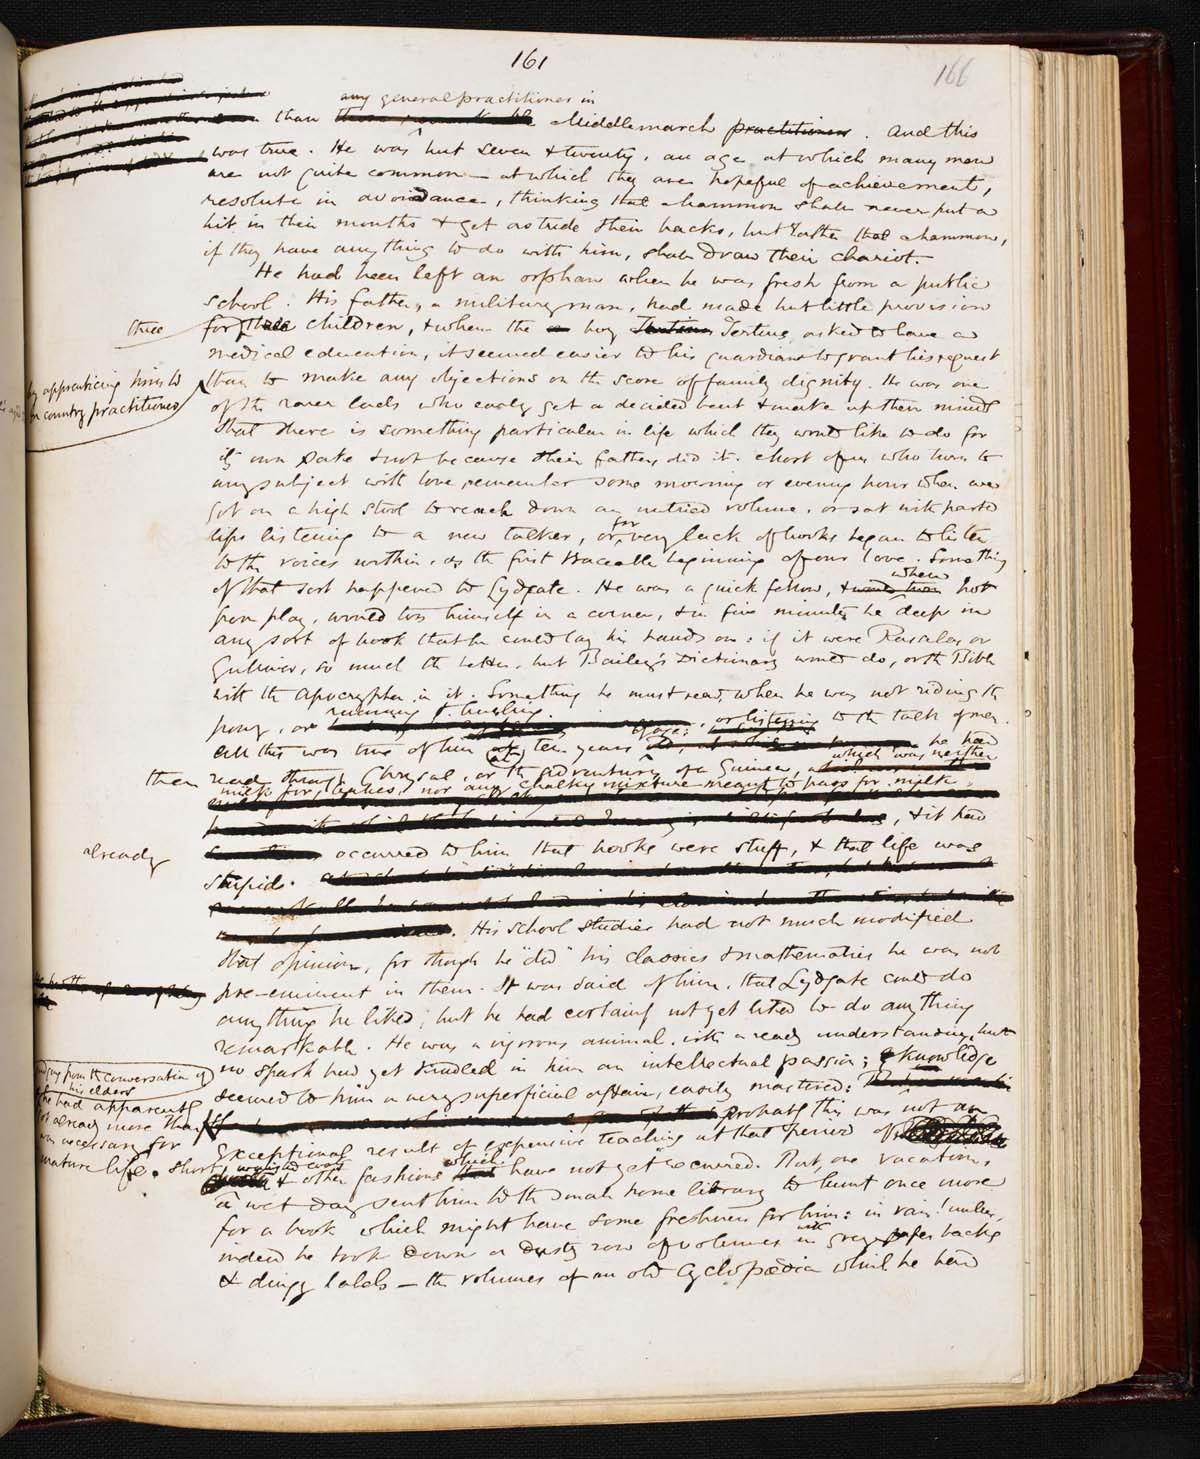 161
166
any general practitioner in
than Middlemarch practitioners. And this
was true. He was but seven & twenty, an age at which many men
are not quite common — at which they are hopeful of achievement,
resolute in avoidance, thinking that Mammon shall never put a
bit in their mouths & get astride their backs, but rather that Mammon,
if they have anything to do with him, shall draw their chariot.
He had been left an orphan when he was fresh from a public
school. His father, a military man, had made but little provision
three
for three children, & when the boy Tertius asked to have a
medical education, it seemed easier to his guardians to grant his request
by apprenticing him to
a country practitioner
than to make any objections on the score of family dignity. He was one
of the rarer lads who early get a decided bent & make up their minds
that there is something particular in life which they would like to do for
its own sake & not because their fathers did it. Most of us who turn to
any subject with love, remember some morning or evening hour when we
got on a high stool to reach down an untried volume, or sat with parted
lips listening to a new talker, or for very lack of books began to listen
to the voices within, as the first traceable beginning of our love. Something
of that sort happened to Lydgate. He was a quick fellow, & when hot
from play, would toss himself in a corner, & in five minutes be deep in
any sort of book that he could lay his hands on: if it were Rasselas or
Gulliver, so much the better, but Bailey's Dictionary would do, or the Bible
with the Apocrypha in it. Something he must read, when he was not riding the
pony, or running & hunting, or listening to the talk of men.
All this was true of him at ten years of age: he had
then read through Chrysal, or the Adventures of a Guinea, which was neither
milk for babies, nor any chalky mixture meant to pass for milk
, & it had
already
occurred to him that books were stuff, & that life was
stupid.
His school studies had not much modified
that opinion, for though he "did" his classics & mathematics he was not
pre-eminent in them. It was said of him, that Lydgate could do
anything he liked; but he had certainly not yet liked to do anything
remarkable. He was a vigorous animal, with a ready understanding, but
no spark had yet kindled in him an intellectual passion; knowledge
seemed to him a very superficial affair, easily mastered:
judging from the conversation of
his elders
he had apparently
got already more than
was necessary for
mature life.
Probably this was not an
exceptional result of expensive teaching at that period of
short waisted coats & other fashions which have not yet recurred. But, one vacation,
a wet day sent him to the small home library to hunt once more
for a book which might have some freshness for him: in vain! unless,
indeed he took down a dusty row of volumes with grey paper backs
& dingy labels — the volumes of an old Cyclopædia which he had